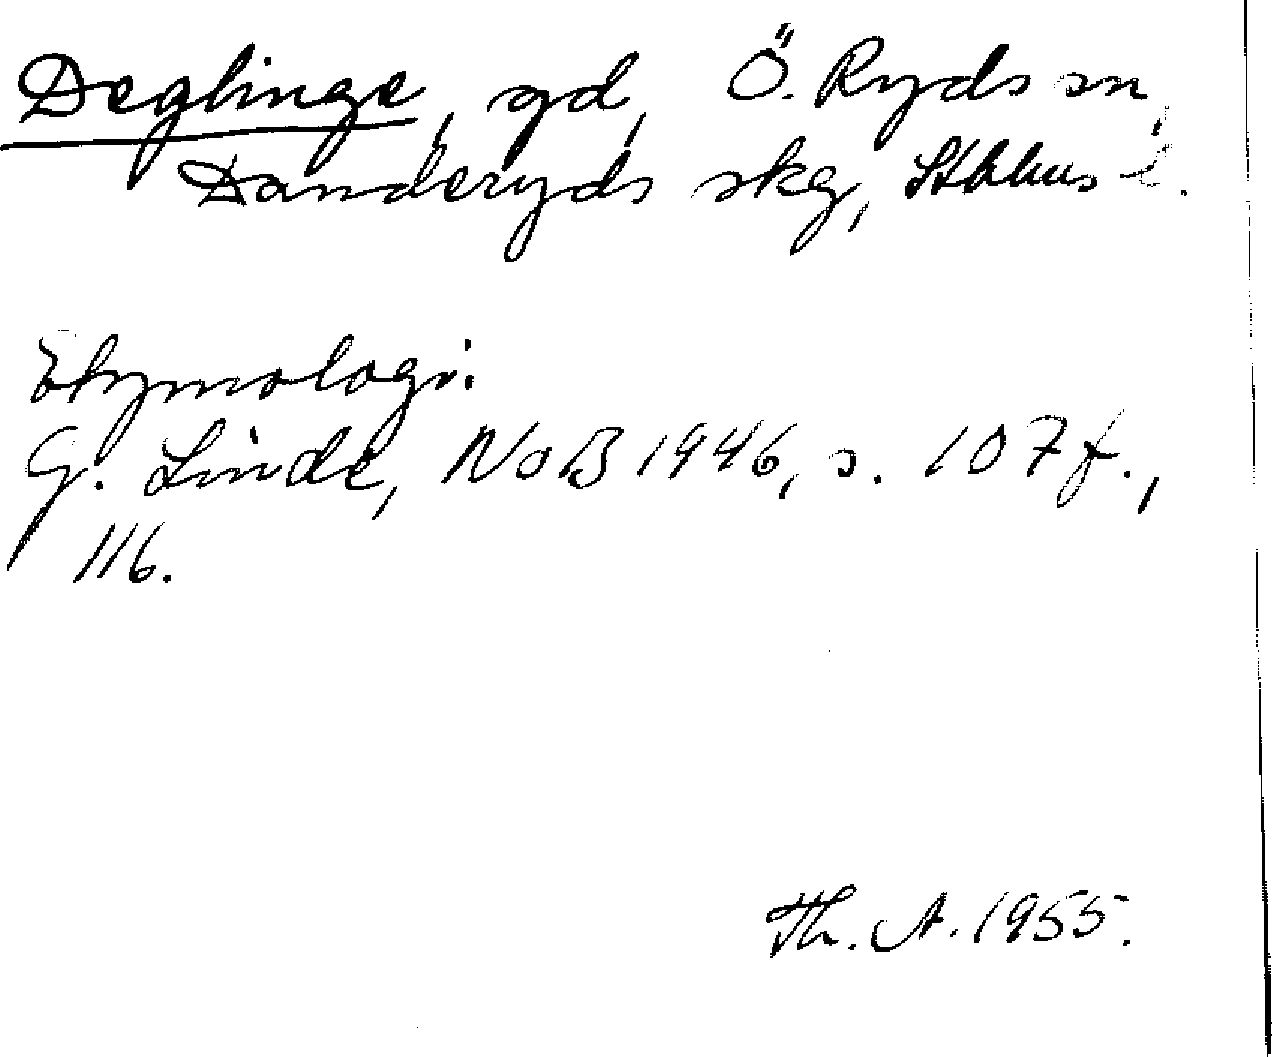 Deglinge, gd, Ö. Ryds sn,
Danderyds skg, Sthlms l.
Etymologi:
G. Linde, NoB 1946, s. 107 f.,
116.
Th. A. 1955.